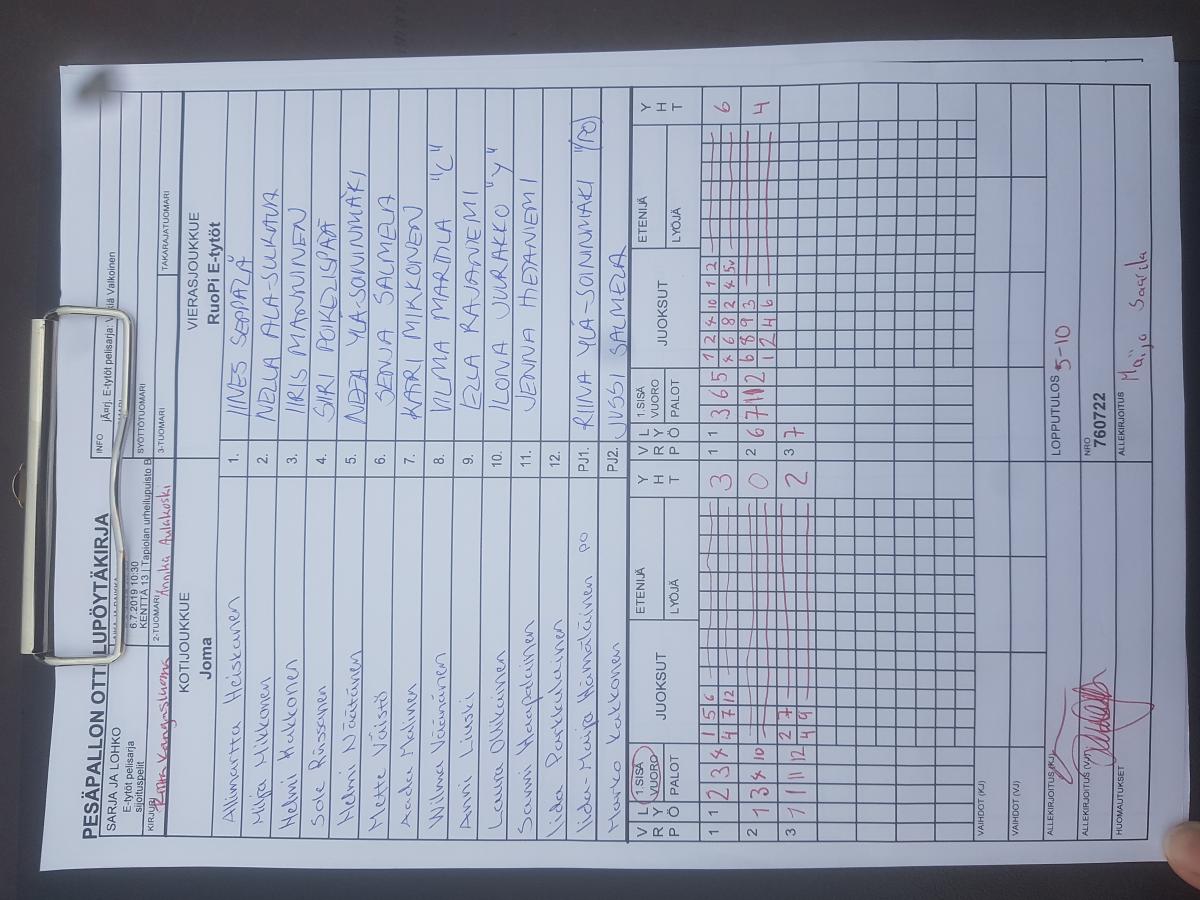 PESÄPALLON OTTELUPÖYTÄKIRJA
SARJA JA LOHKO
E-tytöt pelisarja
sijoituspelit
6.7.2019 10:30
KENTTÄ 13 | Tapiolan urheilupuisto B
INFO
E-tytöt pelisarja:
Valkoinen
KIRJURI
2-TUOMARI
Annika Aulakoski
SYÖTTÖTUOMARI
3-TUOMARI
TAKARAJATUOMARI
KOTIJOUKKUE
Joma
VIERASJOUKKUE
RuoPi E-tytöt
Allimartta Häiskanen 1. IINES SEPPÄLÄ
Milja Mikkonen 2. NELLA ALA-SULKAVA
Helmi Hakkonen 3. IIRIS MANNINEN
Sole Rinssanen 4. SIIRI POIKELISPÄÄ
Helmi Näätänen 5. NEEA YLÄ-SOININMÄKI
Mette Väistö 6. SENJA SALMELA
Aada Malinen 7. KARI MIKKONEN
Wilma Väänänen 8. VILMA MARTILA "L"
Anni Liuski 9. EZLA RAJANIEMI
Laura Ollikainen 10. ILONA JUURAKKO "Y"
Sanni Haapalainen 11. JENNA HIETANIEMI
Iida Parkkulainen 12.
Iida-Maija Hämäläinen PO PJ1. RIINA YLÄ-SOININMÄKI "(PO)
Marko Kakkonen PJ2. JUSSI SALMELA
VRP LYÖ 1.SISÄ VUORO PALOT JUOKSUT ETENIJÄ LYÖJÄ YHT VRP LYÖ 1.SISÄ VUORO PALOT JUOKSUT ETENIJÄ LYÖJÄ YHT
1 1 2 3 4 1 5 6 3 1 1 3 6 5 1 2 4 10 1 2 6
4 7 12 4 6 8 2 4 5v
2 1 3 4 10 0 2 6 7 11 2 6 8 9 3 4
1 2 4 6
3 11 11 12 2 7 2 3 7
4 9
VAIHDOT (KJ)
VAIHDOT (VJ)
ALLEKIRJOITUS (KJ)
LOPPUTULOS 5-10
ALLEKIRJOITUS (VJ)
NRO
760722
HUOMAUTUKSET
ALLEKIRJOITUS
Maijo Saarila